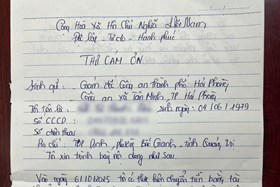 Cộng Hoà Xã Hội Chủ Nghĩa Việt Nam
Độc lập - Tự do - Hạnh phúc
THƯ CẢM ƠN
Kính gửi: Giám đốc Công an thành phố Hải Phòng
Công an xã Tân Minh, TP Hải Phòng
Tôi tên là sinh ngày: 04/06/1979
Số CCCD
Số điện thoại
Địa chỉ: Định, phường Bắc Gianh, tỉnh Quảng Trị
Tôi xin trình bày nội dung như sau
Vào ngày 6/10/2025 tôi có thực hiện chuyển tiền bằng tài